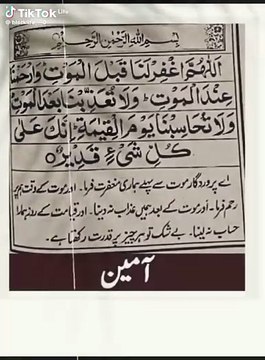 TikTok
بِسْمِ اللهِ الرَّحْمٰنِ الرَّحِيْمِ
اَللّٰهُمَّ اغْفِرْ لَنَا قَبْلَ الْمَوْتِ وَارْحَمْنَا
عِنْدَ الْمَوْتِ وَلَا تُعَذِّبْنَا بَعْدَ الْمَوْتِ
وَلَا تُحَاسِبْنَا يَوْمَ الْقِيٰمَةِ اِنَّكَ عَلٰى
كُلِّ شَیْءٍ قَدِیْرٌ
اے پروردگار موت سے پہلے ہماری مغفرت فرما۔ اور موت کے وقت ہم پر
رحم فرما۔ اور موت کے بعد ہمیں عذاب نہ دینا۔ اور قیامت کے روز ہمارا
حساب نہ لینا۔ بے شک تو ہر چیز پر قدرت رکھتا ہے۔
آمین